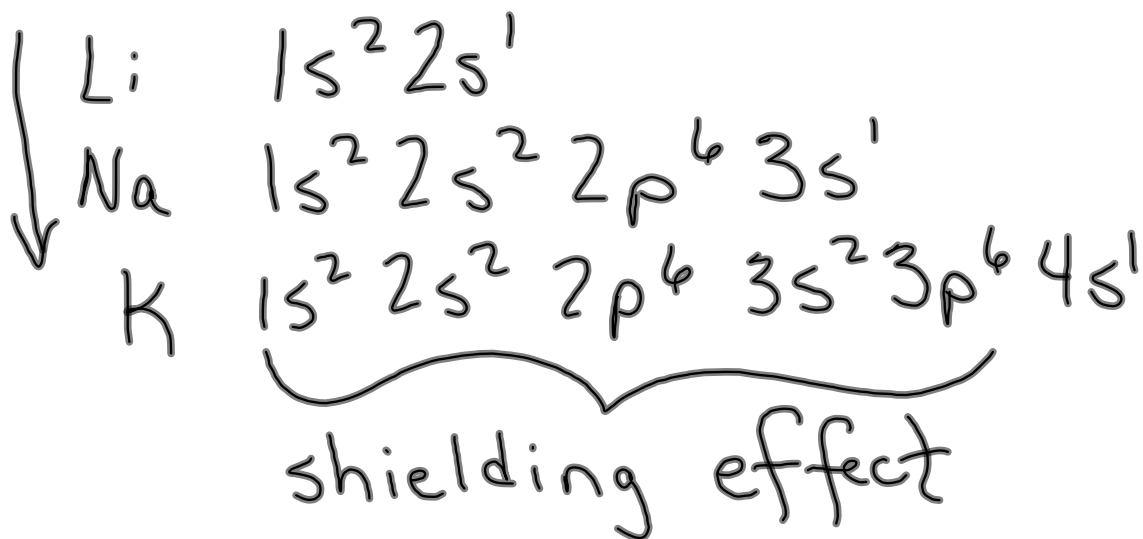 Li 1s² 2s¹
Na 1s² 2s² 2p⁶ 3s¹
K 1s² 2s² 2p⁶ 3s² 3p⁶ 4s¹
shielding effect